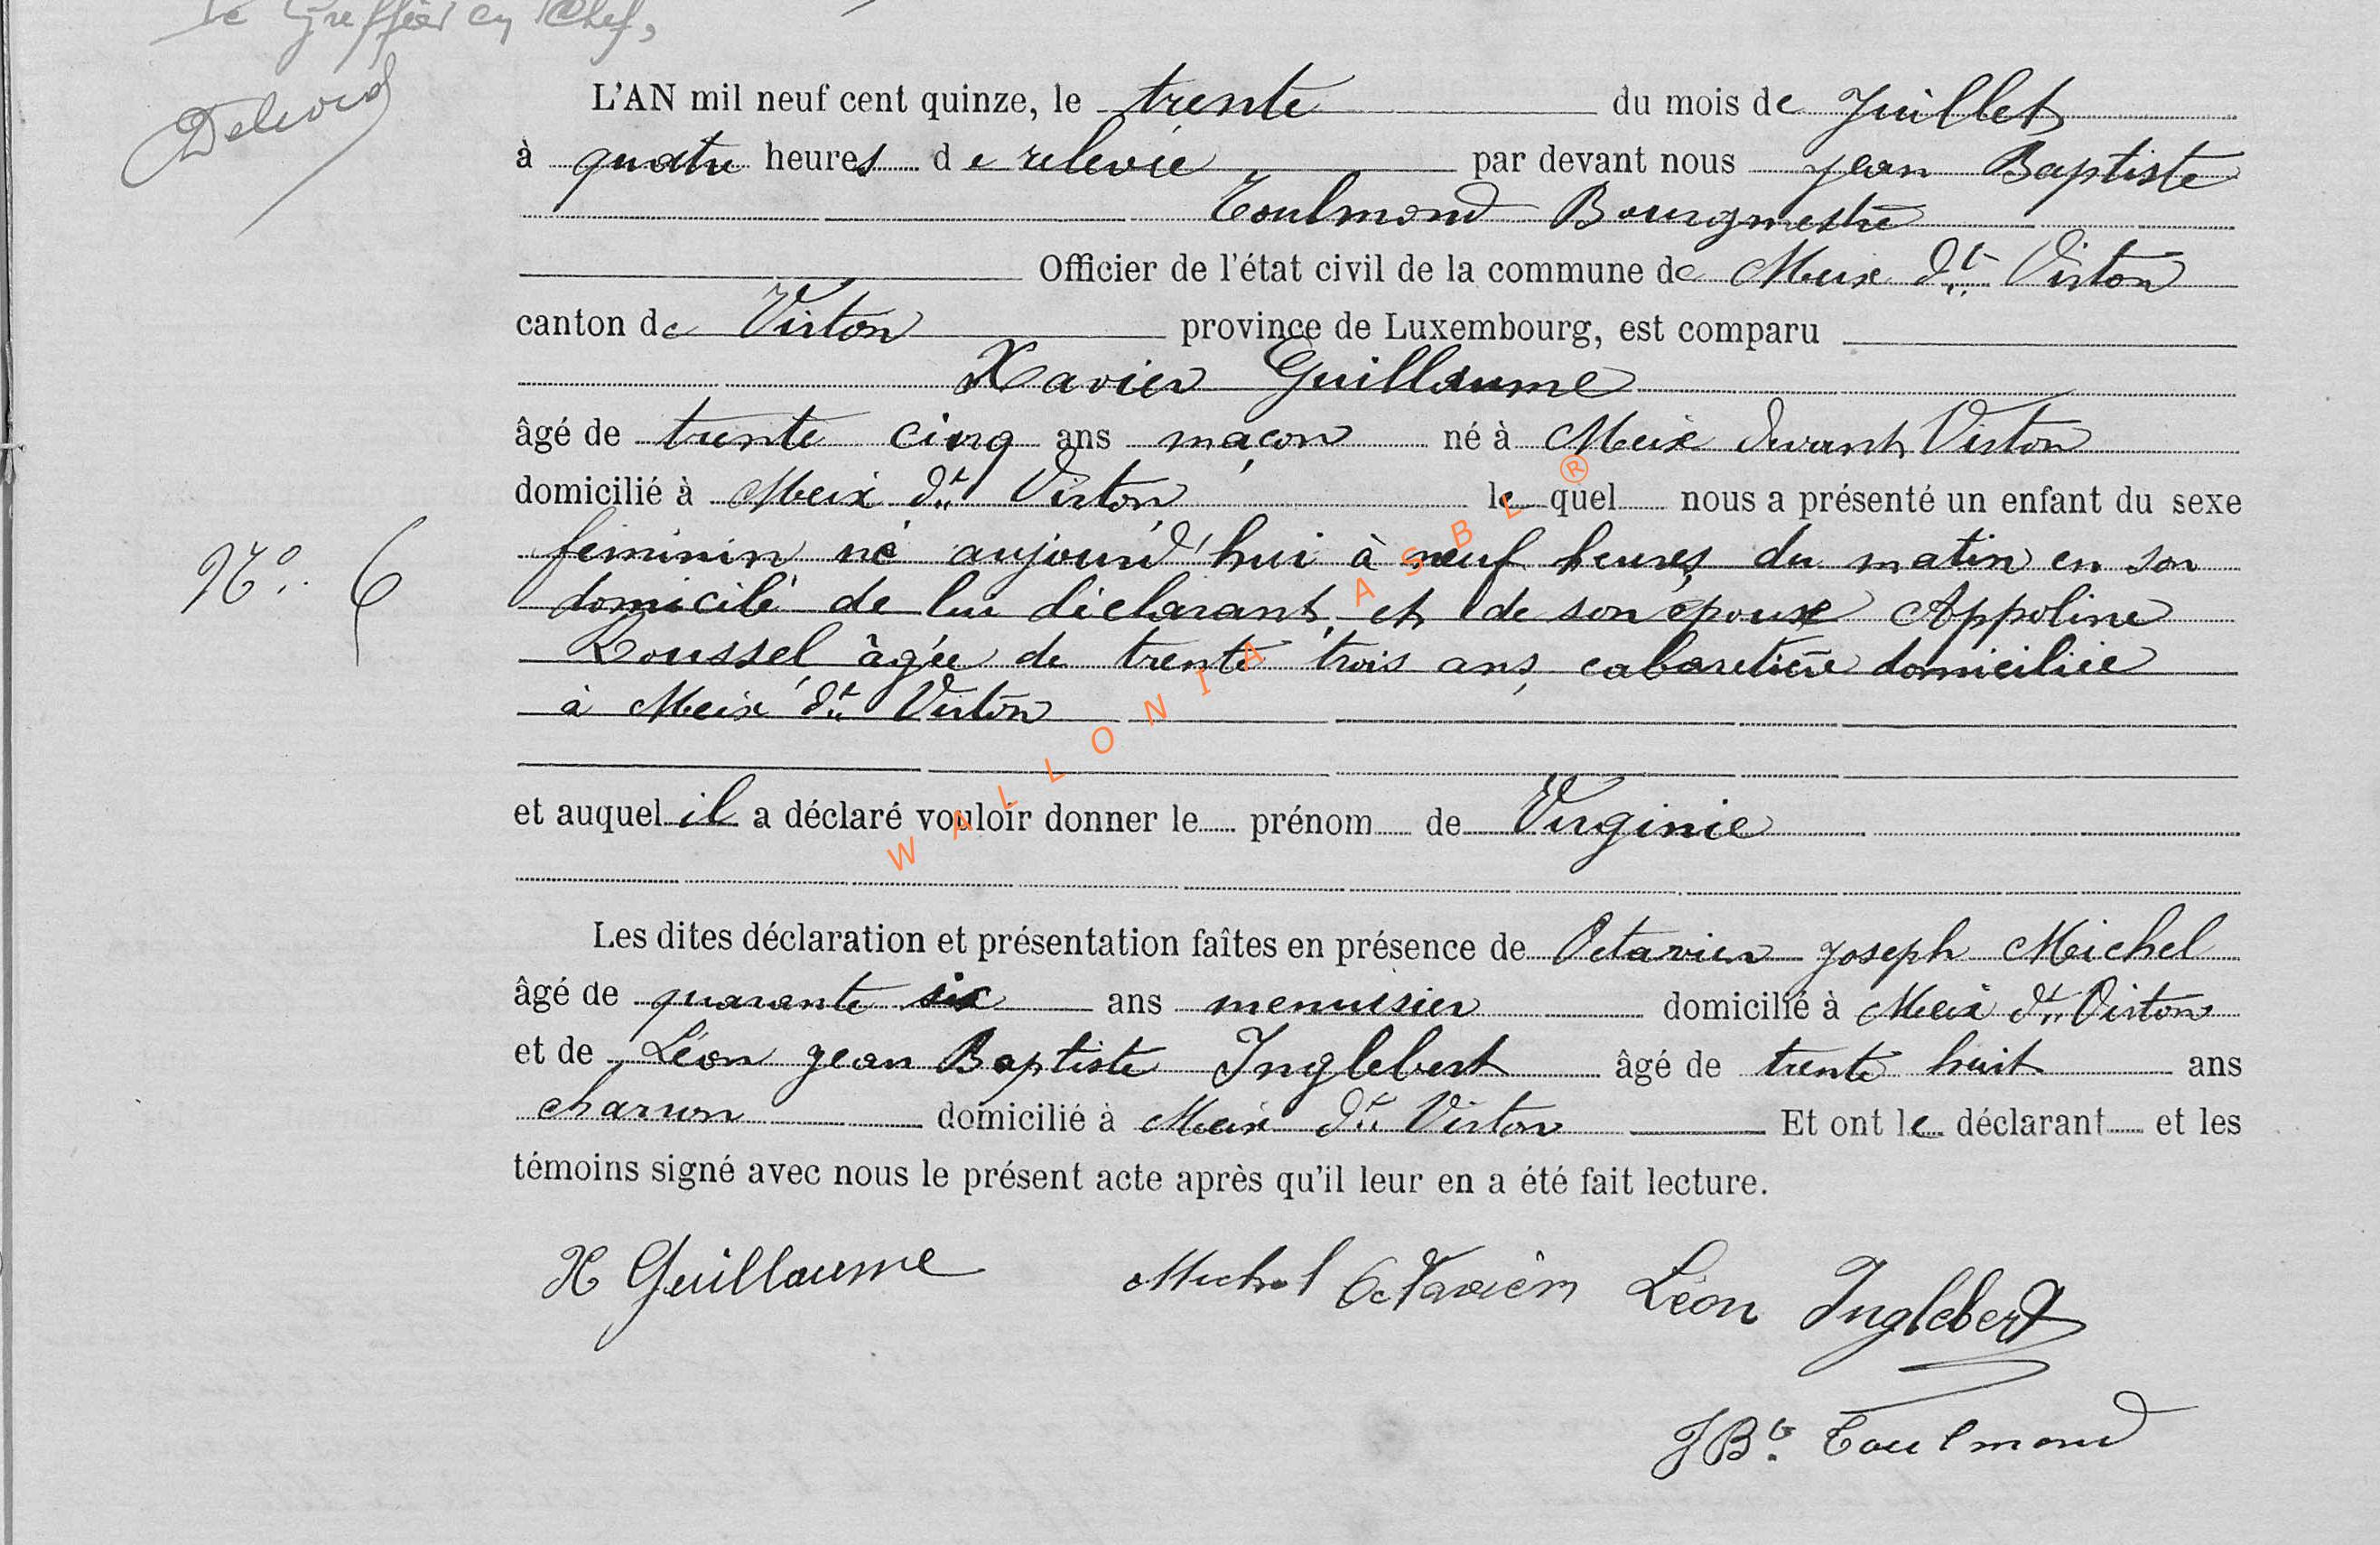 Le Greffier en Chef,
L'AN mil neuf cent quinze, le trente du mois de Juillet
à quatre heures de relevée par devant nous Jean Baptiste
Toulmond Bourgmestre
Officier de l'état civil de la commune de Meix dt Virton
canton de Virton province de Luxembourg, est comparu
Xavier Guillaume
âgé de trente cinq ans maçon né à Meix devant Virton
domicilié à Meix dt Virton lequel nous a présenté un enfant du sexe
No. 6
féminin né aujourd'hui à neuf heures du matin en son
domicile de lui déclarant et de son épouse Appoline
Roussel âgée de trente trois ans, cabaretière domiciliée
à Meix dt Virton
et auquel il a déclaré vouloir donner le prénom de Virginie
Les dites déclaration et présentation faîtes en présence de Octavien Joseph Michel
âgé de quarante six ans menuisier domicilié à Meix dt Virton
et de Léon Jean Baptiste Inglebert âgé de trente huit ans
charron domicilié à Meix dt Virton Et ont le déclarant et les
témoins signé avec nous le présent acte après qu'il leur en a été fait lecture.
X Guillaume Michel Octavien Léon Inglebert
JBte Toulmond
WALLONIA ASBL ®